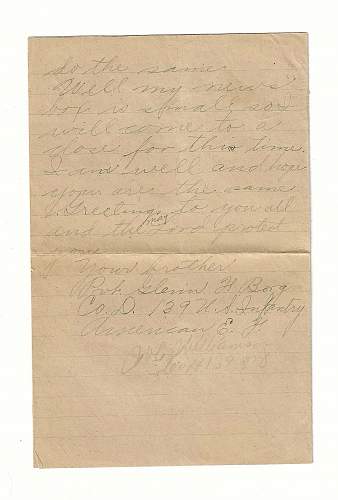 do the same.
Well my news
box is small so
will come to a
close for this time.
I am well and hope
you are the same
Greetings to you all
and the Lord may protect
you
Your brother
Pvt. Glenn H Borg
Co. D. 139 U.S. Infantry
American E. F.